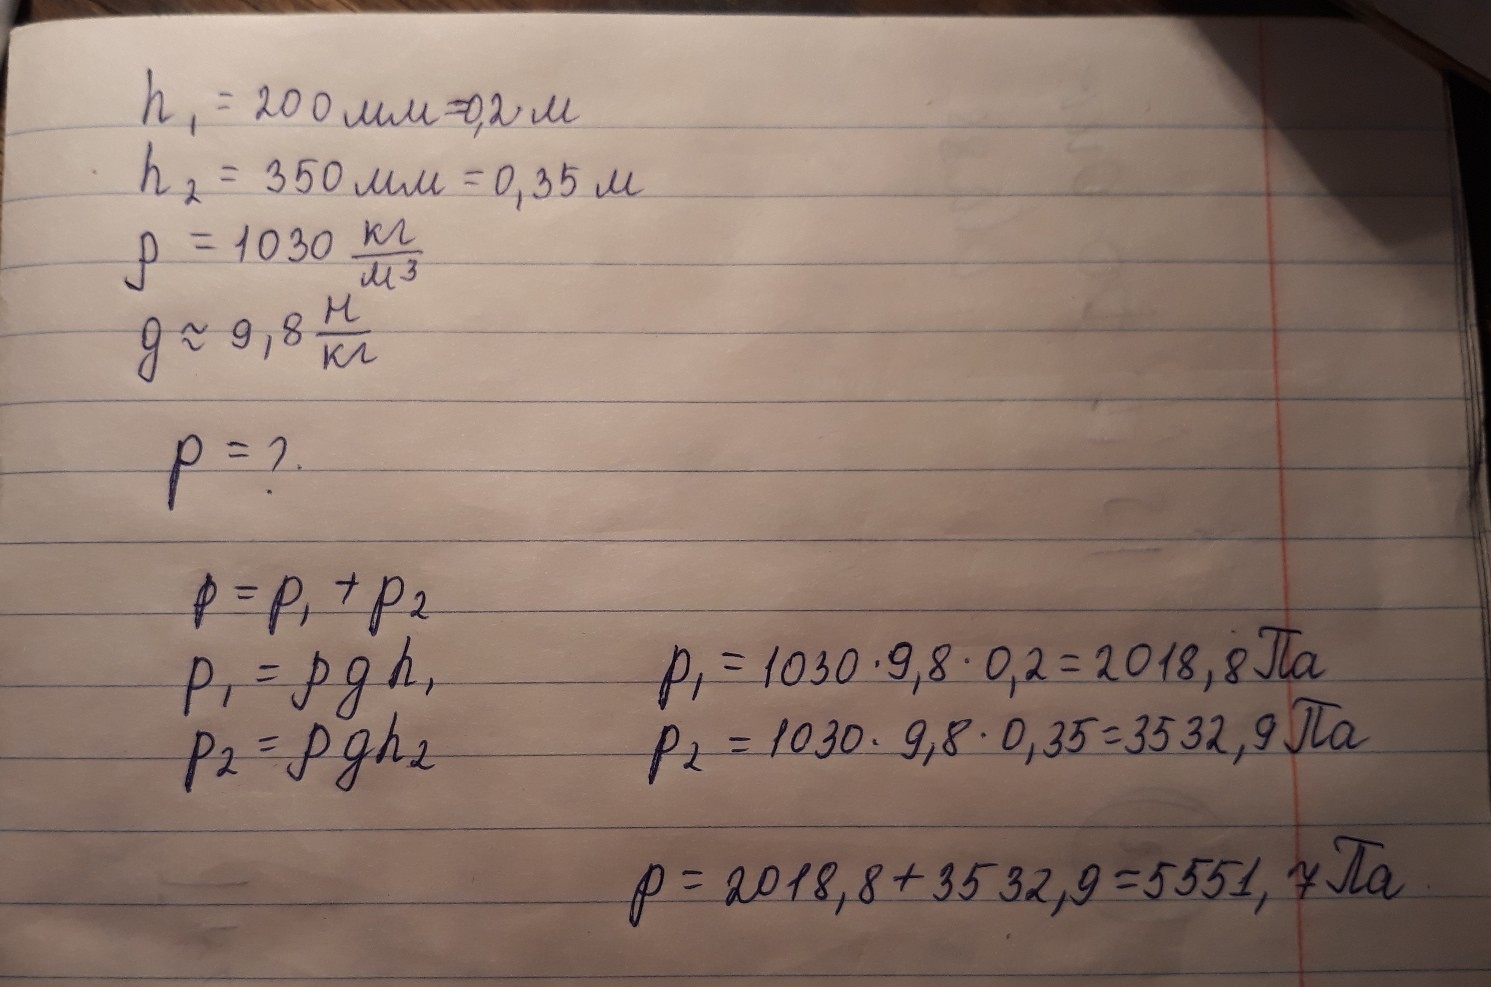 h₁ = 200 мм = 0,2 м
h₂ = 350 мм = 0,35 м
ρ = 1030 кг/м³
g ≈ 9,8 Н/кг
p = ?
p = p₁ + p₂
p₁ = ρgh₁ p₁ = 1030 · 9,8 · 0,2 = 2018,8 Па
p₂ = ρgh₂ p₂ = 1030 · 9,8 · 0,35 = 3532,9 Па
p = 2018,8 + 3532,9 = 5551,7 Па